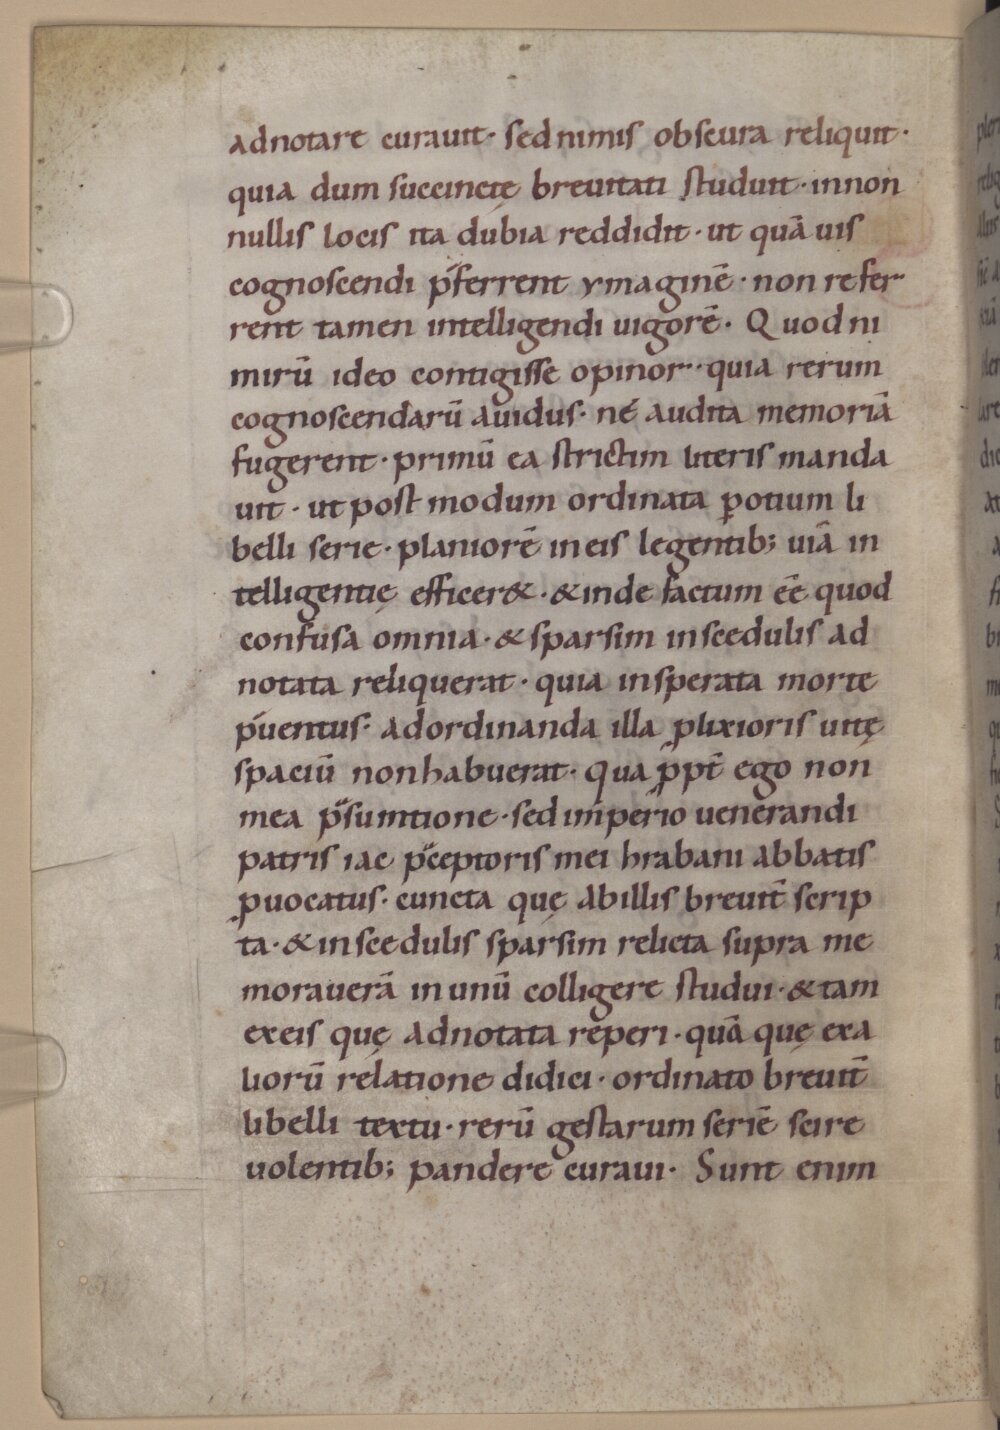 adnotare curauit· sed nimis obscura reliquit·
quia dum succinctę breuitati studuit· in non
nullis locis ita dubia reddidit· ut quā uis
cognoscendi p̄ferrent ymaginē· non refer
rent tamen intelligendi uigorē· Quod ni
mirū ideo contigisse opinor· quia rerum
cognoscendarū auidus· ne audita memoriā
fugerent· primū ea strictim literis manda
uit· ut post modum ordinata potium li
belli serie· planiorē in eis legentib; uiā in
telligentię efficer&· & inde factum ēe quod
confusa omnia· & sparsim in scedulis ad
notata reliquerat· quia insperata morte
p̄uentus· ad ordinanda illa ꝓlixioris uitę
spaciū non habuerat· qua ꝓpt̄ ego non
mea p̄sumtione· sed imperio uenerandi
patris iac p̄ceptoris mei hrabani abbatis
ꝓuocatus· cuncta quę ab illis breuit̄ scrip
ta· & in scedulis sparsim relicta supra me
morauerā in unū colligere studui· & tam
ex eis quę adnotata reperi· quā quę ex a
liorū relatione didici· ordinato breuit̄
libelli textu· rerū gestarum seriē scire
uolentib; pandere curaui· Sunt enim